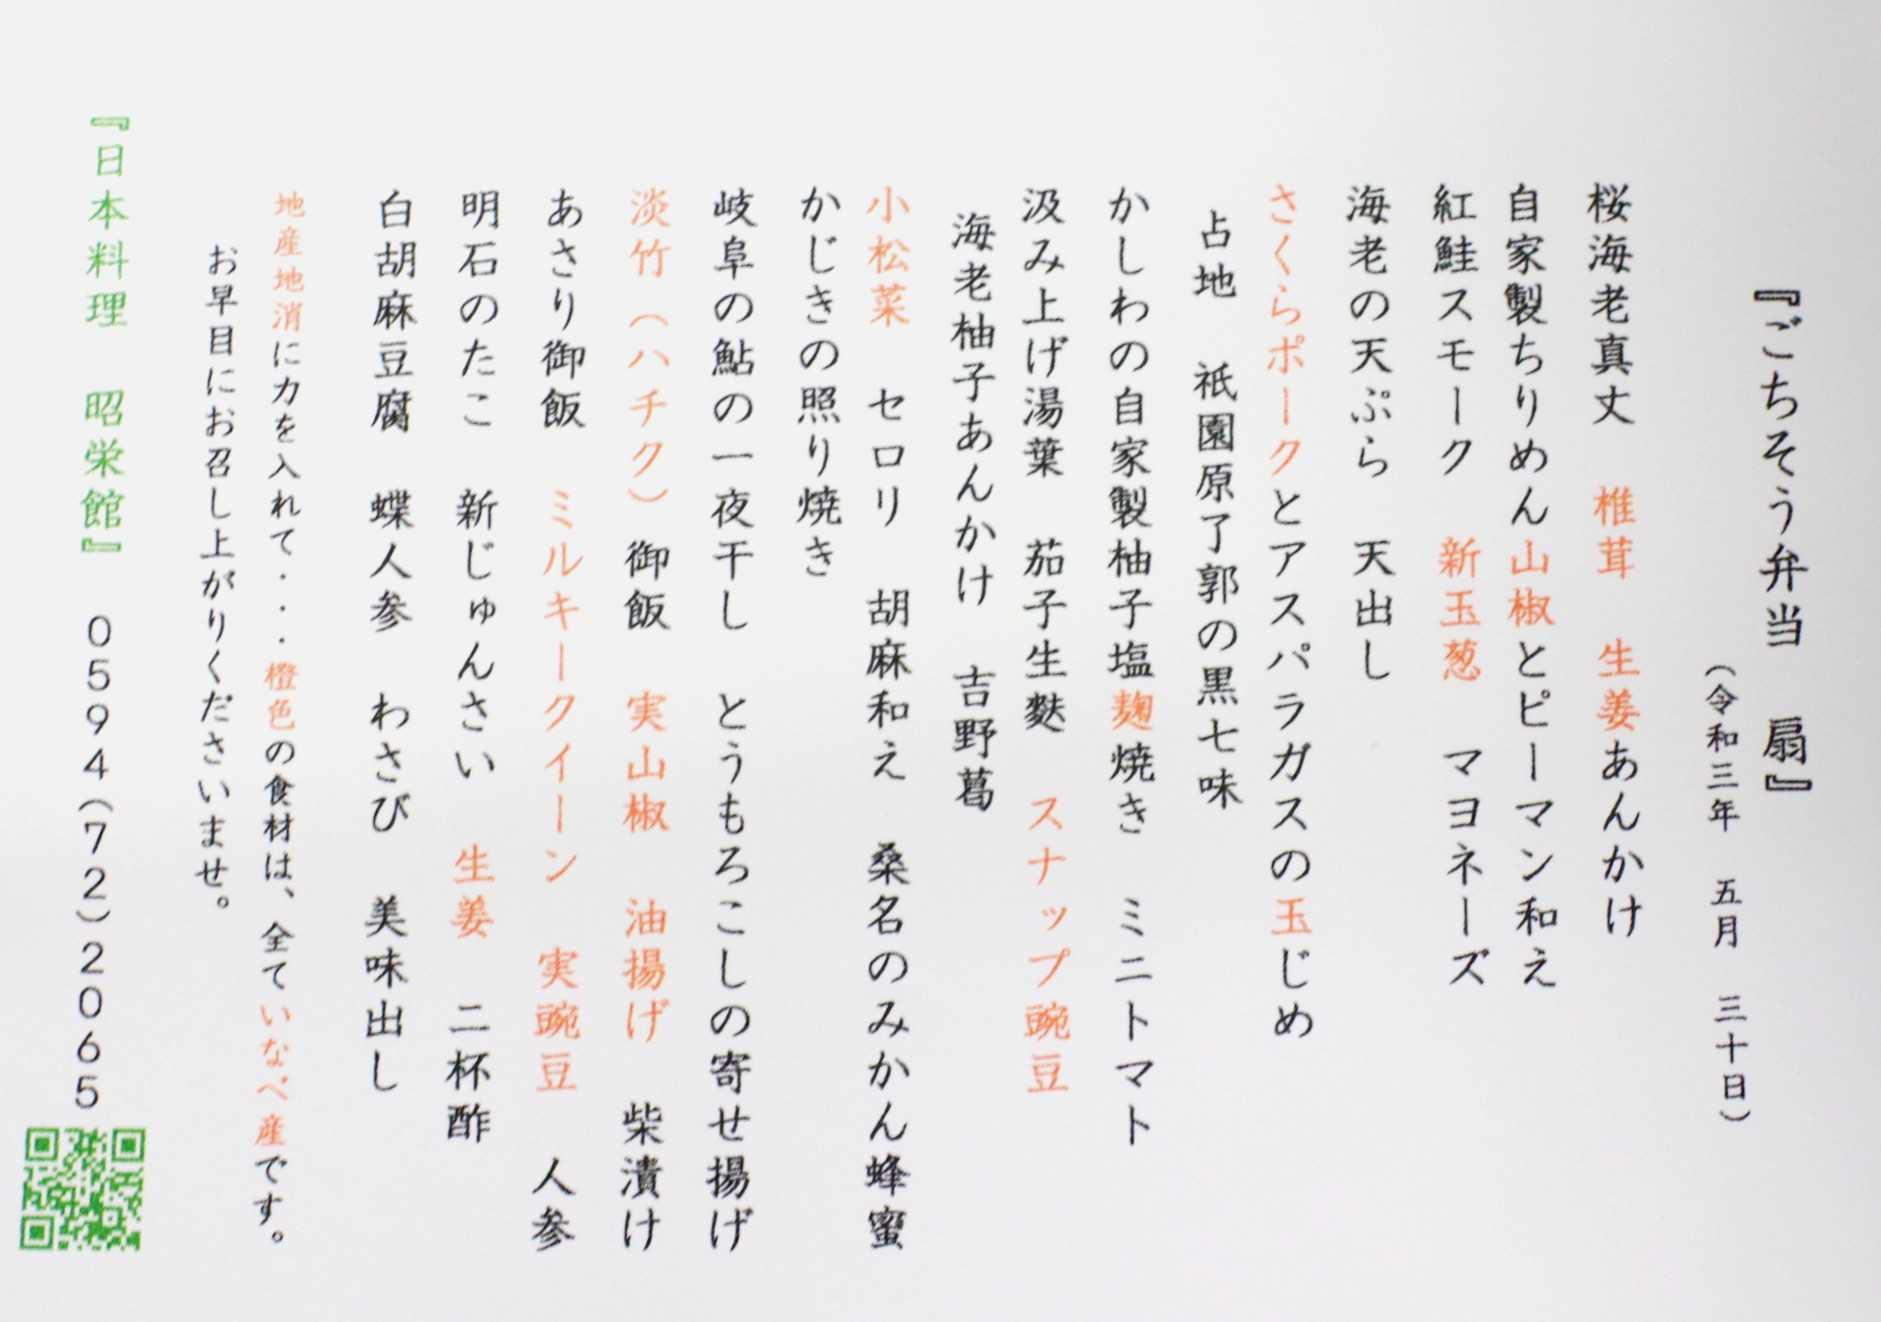 『ごちそう弁当　扇』
（令和三年　五月　三十日）
桜海老真丈　椎茸　生姜あんかけ
自家製ちりめん山椒とピーマン和え
紅鮭スモーク　新玉葱　マヨネーズ
海老の天ぷら　天出し
さくらポークとアスパラガスの玉じめ
占地　祇園原了郭の黒七味
かしわの自家製柚子塩麹焼き　ミニトマト
汲み上げ湯葉　茄子生麩　スナップ豌豆
海老柚子あんかけ　吉野葛
小松菜　セロリ　胡麻和え　桑名のみかん蜂蜜
かじきの照り焼き
岐阜の鮎の一夜干し　とうもろこしの寄せ揚げ
淡竹（ハチク）御飯　実山椒　油揚げ　柴漬け
あさり御飯　ミルキークイーン　実豌豆　人参
明石のたこ　新じゅんさい　生姜　二杯酢
白胡麻豆腐　蝶人参　わさび　美味出し
地産地消に力を入れて・・・橙色の食材は、全ていなべ産です。
お早目にお召し上がりくださいませ。
『日本料理　昭栄館』　0594(72)2065